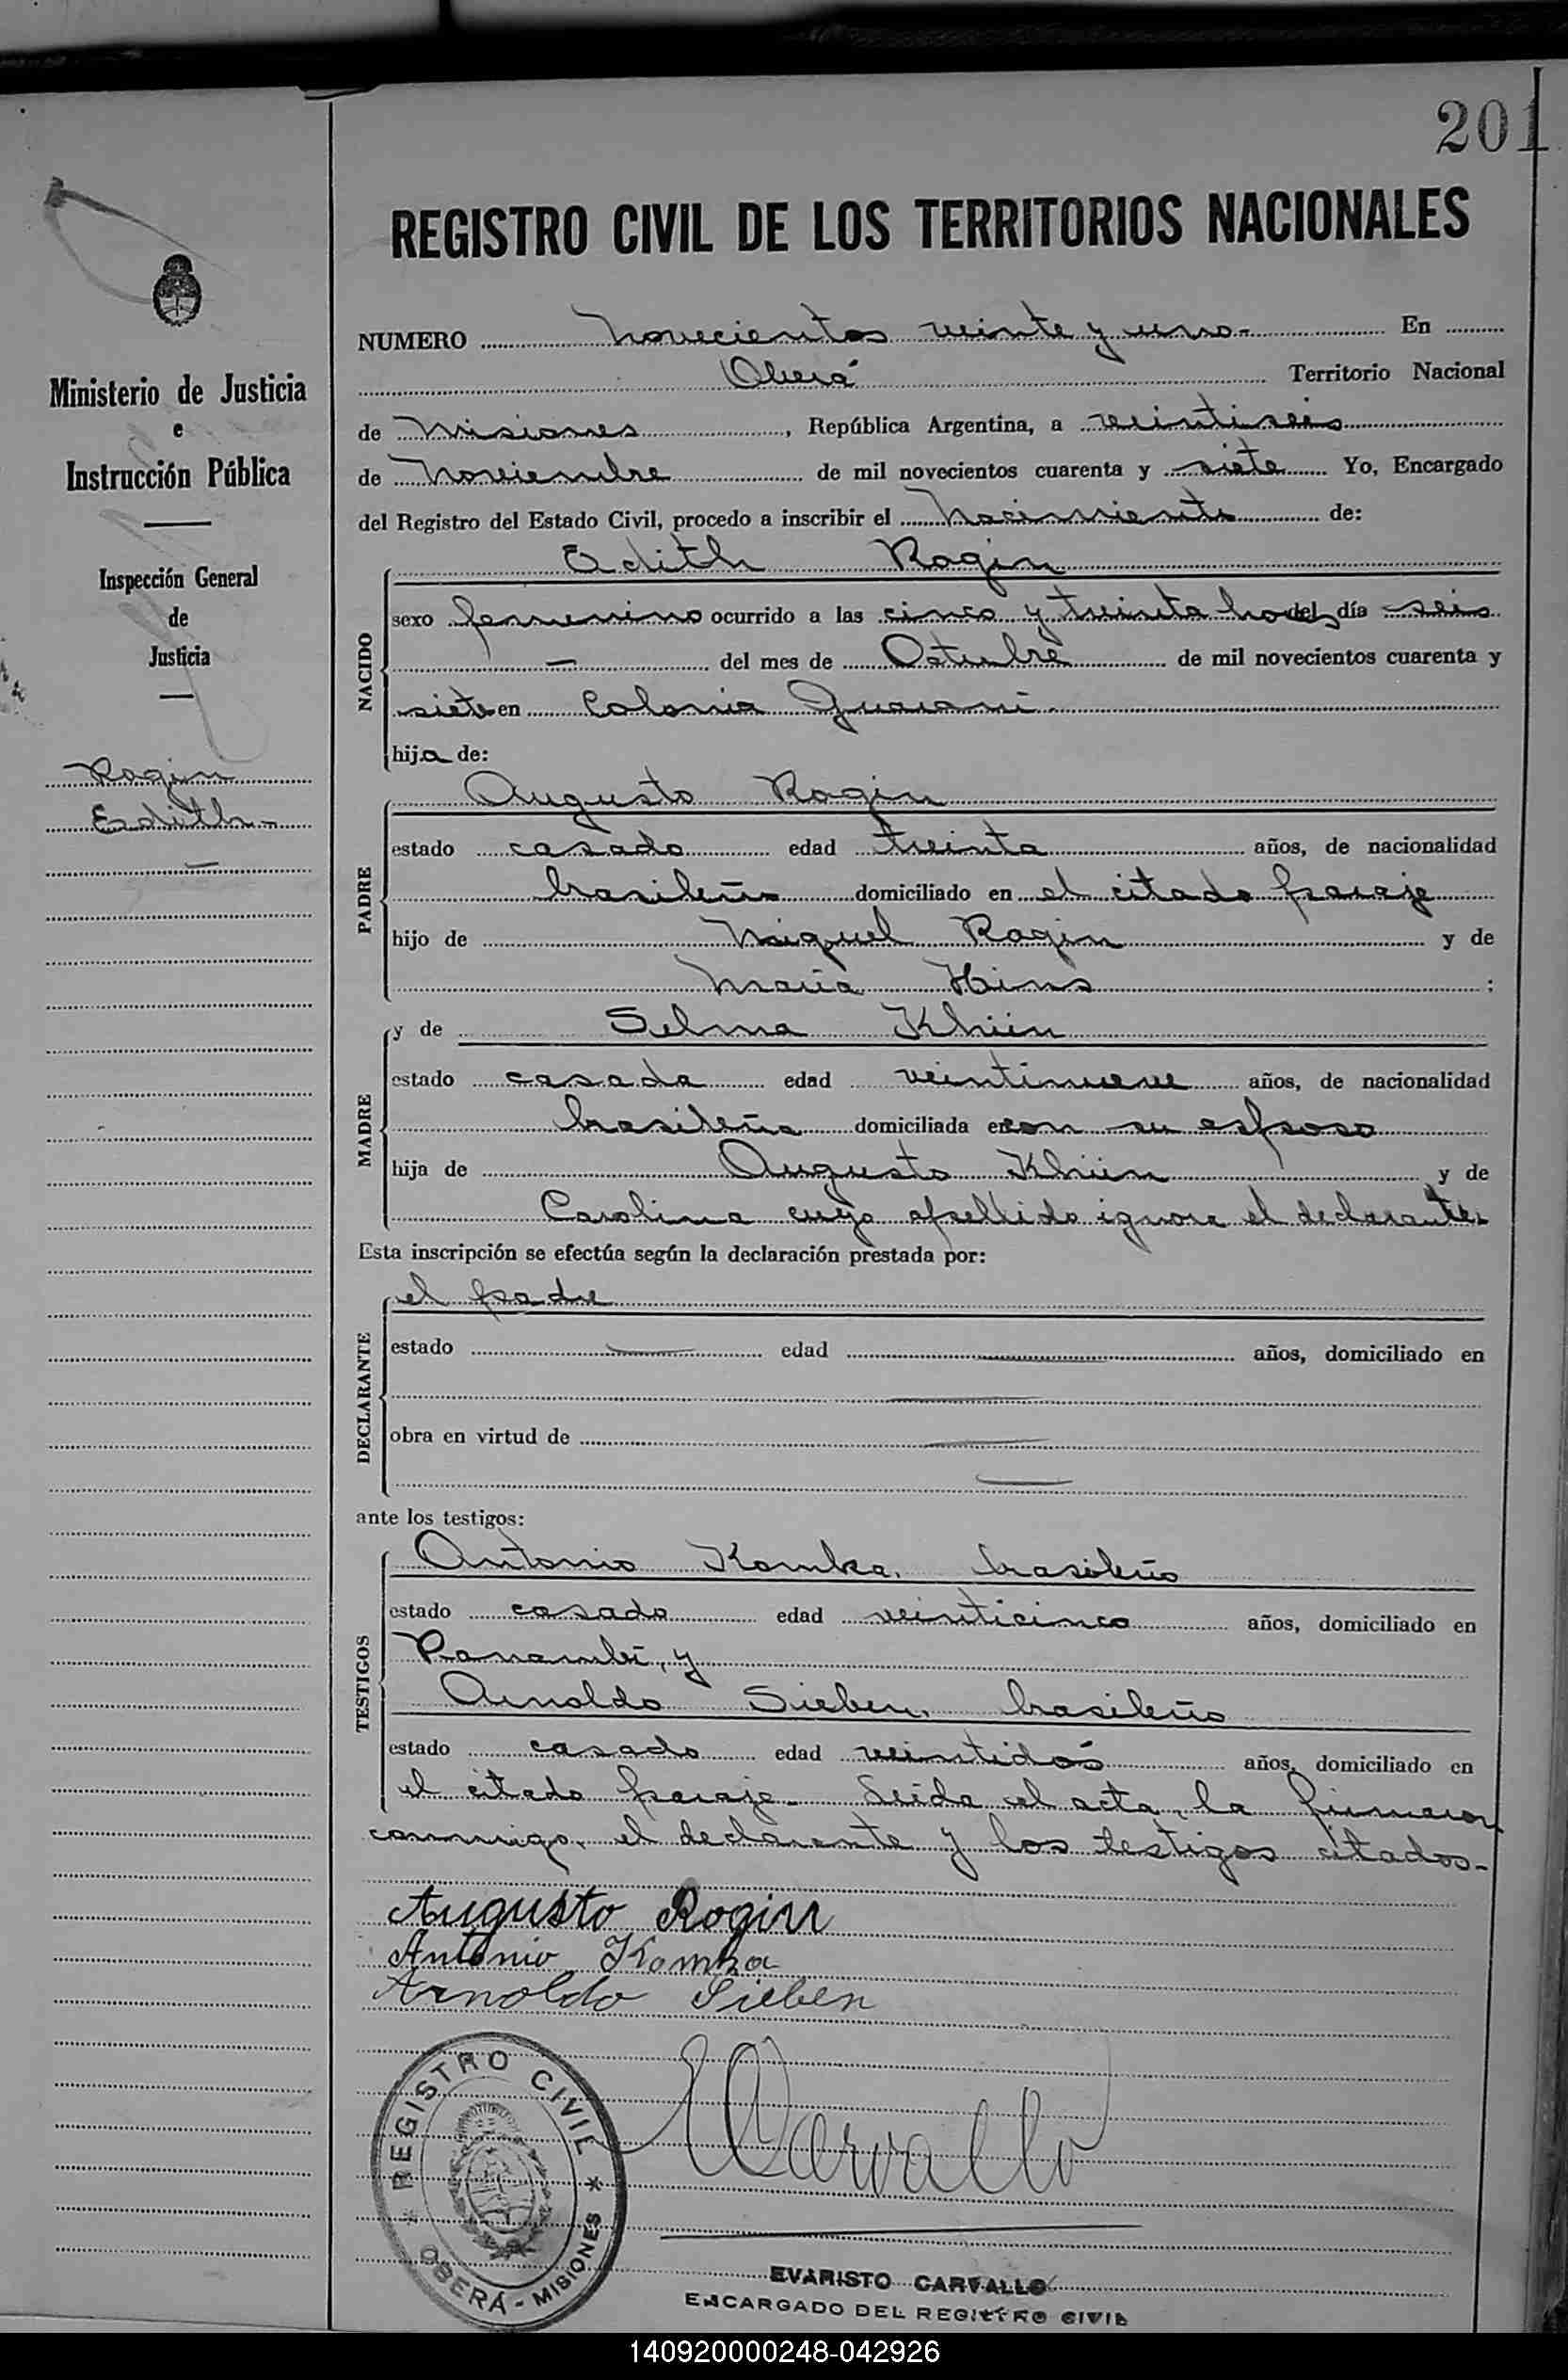 201
REGISTRO CIVIL DE LOS TERRITORIOS NACIONALES
Ministerio de Justicia
e
Instrucción Pública
Inspección General
de
Justicia
Rogin
Edith-
NUMERO novecientos veinte y uno- En
Oberá Territorio Nacional
de Misiones, República Argentina, a veintiseis
de Noviembre de mil novecientos cuarenta y siete Yo, Encargado
del Registro del Estado Civil, procedo a inscribir el Nacimiento de:
NACIDO
Edith Rogin
sexo femenino ocurrido a las cinco y treinta hs del día seis
— del mes de Octubre de mil novecientos cuarenta y
siete en Colonia Guaraní-
hija de:
PADRE
Augusto Rogin
estado casado edad treinta años, de nacionalidad
brasileño domiciliado en el citado paraje
hijo de Miguel Rogin y de
María Hins;
MADRE
y de Selma Khün
estado casada edad veintinueve años, de nacionalidad
brasileña domiciliada en con su esposo
hija de Augusto Khün y de
Carolina cuyo apellido ignora el declarante.
Esta inscripción se efectúa según la declaración prestada por:
DECLARANTE
el padre
estado — edad — años, domiciliado en
—
obra en virtud de —
—
ante los testigos:
TESTIGOS
Antonio Komka, brasileño
estado casado edad veinticinco años, domiciliado en
Panambí, y
Arnoldo Sieben, brasileño
estado casado edad veintidós años, domiciliado en
el citado paraje- Leída el acta, la firmaron
conmigo, el declarante y los testigos citados-
Augusto Rogin
Antonio Komka
Arnoldo Sieben
ECarvallo
REGISTRO CIVIL
OBERÁ - MISIONES
EVARISTO CARVALLO
ENCARGADO DEL REGISTRO CIVIL
140920000248-042926